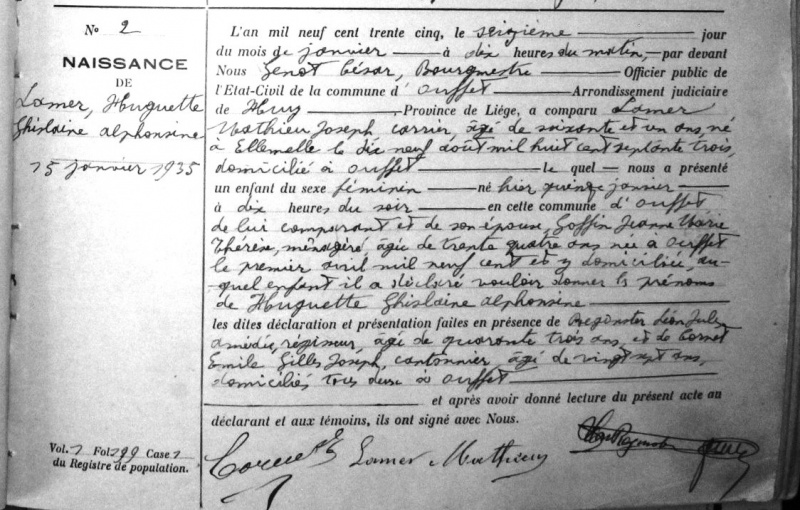 N° 2
NAISSANCE
DE
Lamer, Huguette
Ghislaine Alphonsine
15 janvier 1935
Vol. 7 Fol. 299 Case 2
du Registre de population.
L'an mil neuf cent trente cinq, le seizième jour
du mois de janvier à dix heures du matin, par devant
Nous Genot César, Bourgmestre Officier public de
l'Etat-Civil de la commune d'Ouffet Arrondissement judiciaire
de Huy, Province de Liége, a comparu Lamer
Mathieu Joseph, carrier, âgé de soixante et un ans, né
à Ellemelle le dix neuf août mil huit cent septante trois,
domicilié à Ouffet le quel nous a présenté
un enfant du sexe féminin né hier quinze janvier
à dix heures du soir en cette commune d'Ouffet
de lui comparant et de son épouse, Goffin Jeanne Marie
Thérèse, ménagère âgée de trente quatre ans née à Ouffet
le premier avril mil neuf cent et y domiciliée, au-
quel enfant il a déclaré vouloir donner les prénoms
de Huguette Ghislaine Alphonsine
les dites déclaration et présentation faites en présence de Léon Jules
Amédée, régisseur, âgé de quarante trois ans, et de Cornet
Emile Gilles Joseph, cantonnier, âgé de vingt sept ans,
domiciliés tous deux à Ouffet
et après avoir donné lecture du présent acte au
déclarant et aux témoins, ils ont signé avec Nous.
Cornet E Lamer Mathieu